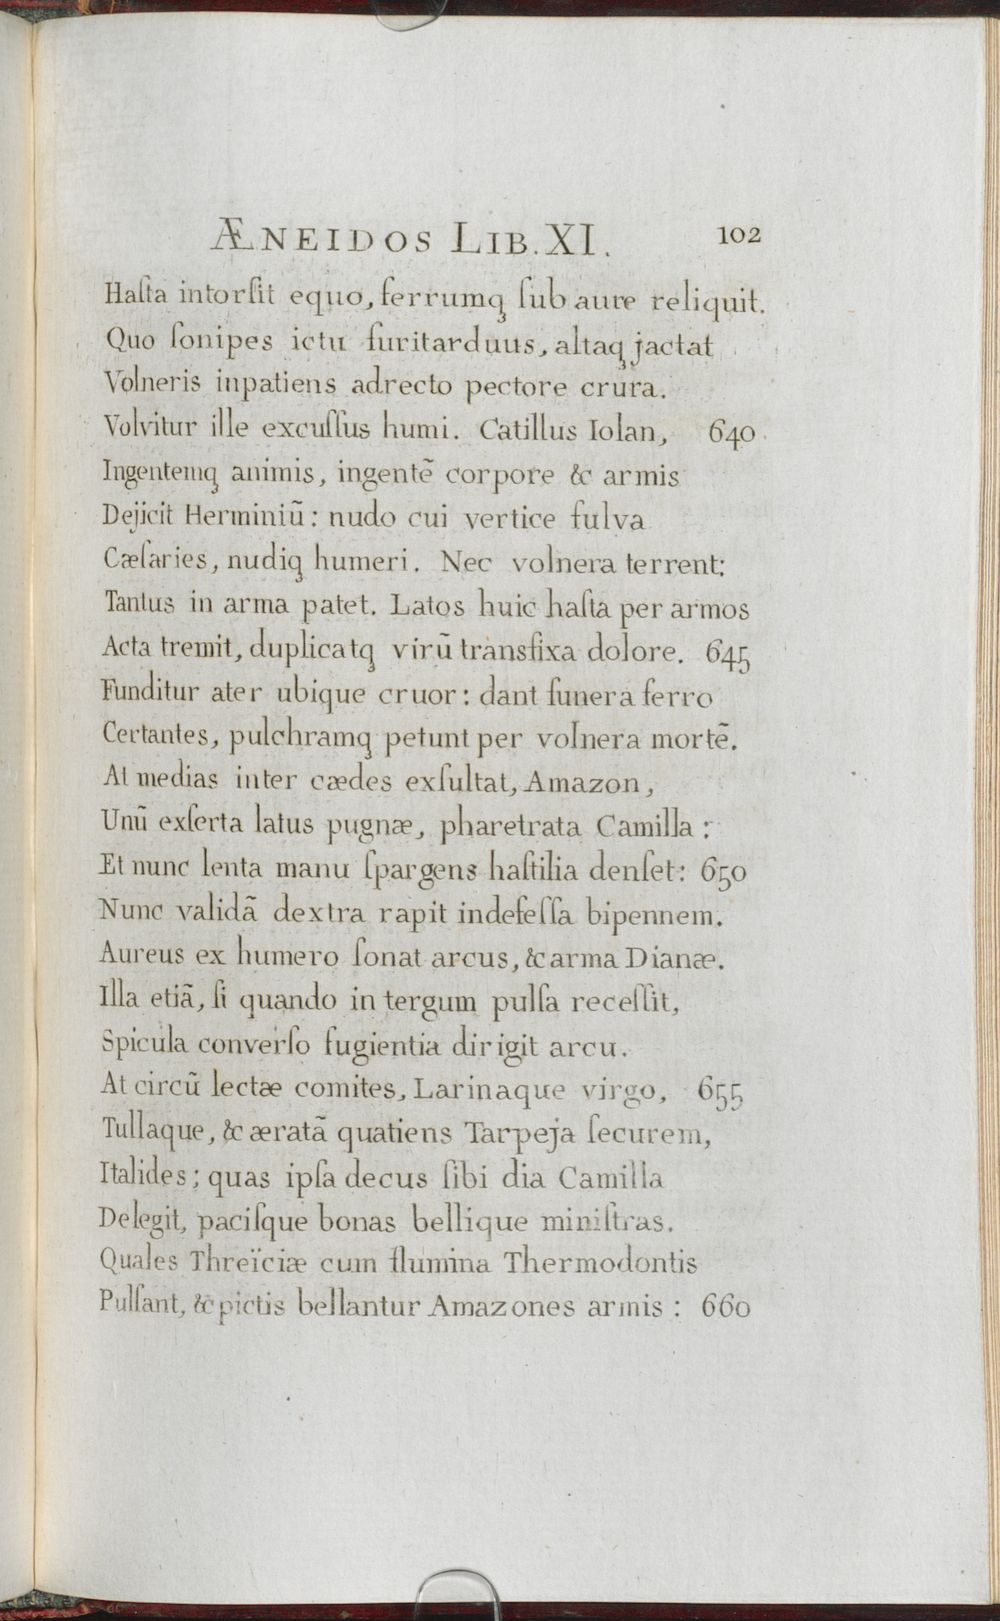 ÆNEIDOS LIB. XI. 102
Haſta intorſit equo, ferrumq̨ ſub aure reliquit.
Quo ſonipes ictu furit arduus, altaq̨ jactat
Volneris inpatiens adrecto pectore crura.
Volvitur ille excuſſus humi. Catillus Iolan, 640
Ingentemq̨ animis, ingentẽ corpore & armis
Dejicit Herminiũ: nudo cui vertice fulva
Cæſaries, nudiq̨ humeri. Nec volnera terrent;
Tantus in arma patet. Latos huic haſta per armos
Acta tremit, duplicatq̨ virũ transfixa dolore. 645
Funditur ater ubique cruor: dant funera ferro
Certantes, pulchramq̨ petunt per volnera mortẽ.
At medias inter cædes exſultat, Amazon,
Unũ exſerta latus pugnæ, pharetrata Camilla:
Et nunc lenta manu ſpargens haſtilia denſet: 650
Nunc validã dextra rapit indefeſſa bipennem.
Aureus ex humero ſonat arcus, & arma Dianæ.
Illa etiã, ſi quando in tergum pulſa receſſit,
Spicula converſo fugientia dirigit arcu.
At circũ lectæ comites, Larinaque virgo, 655
Tullaque, & æratã quatiens Tarpeja ſecurem,
Italides; quas ipſa decus ſibi dia Camilla
Delegit, paciſque bonas bellique miniſtras.
Quales Threïciæ cum flumina Thermodontis
Pulſant, & pictis bellantur Amazones armis: 660